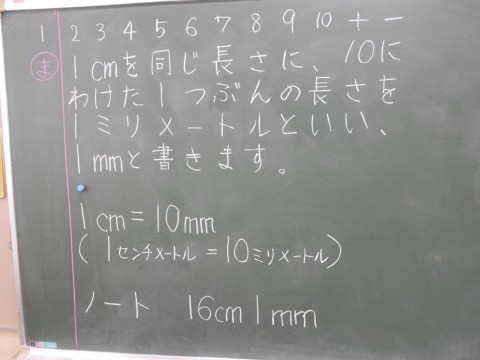 1 2 3 4 5 6 7 8 9 10 十 一
ま 1cmを同じ長さに、10に
わけた1つぶんの長さを
1ミリメートルといい、
1mmと書きます。
1cm=10mm
(1センチメートル=10ミリメートル)
ノート 16cm1mm